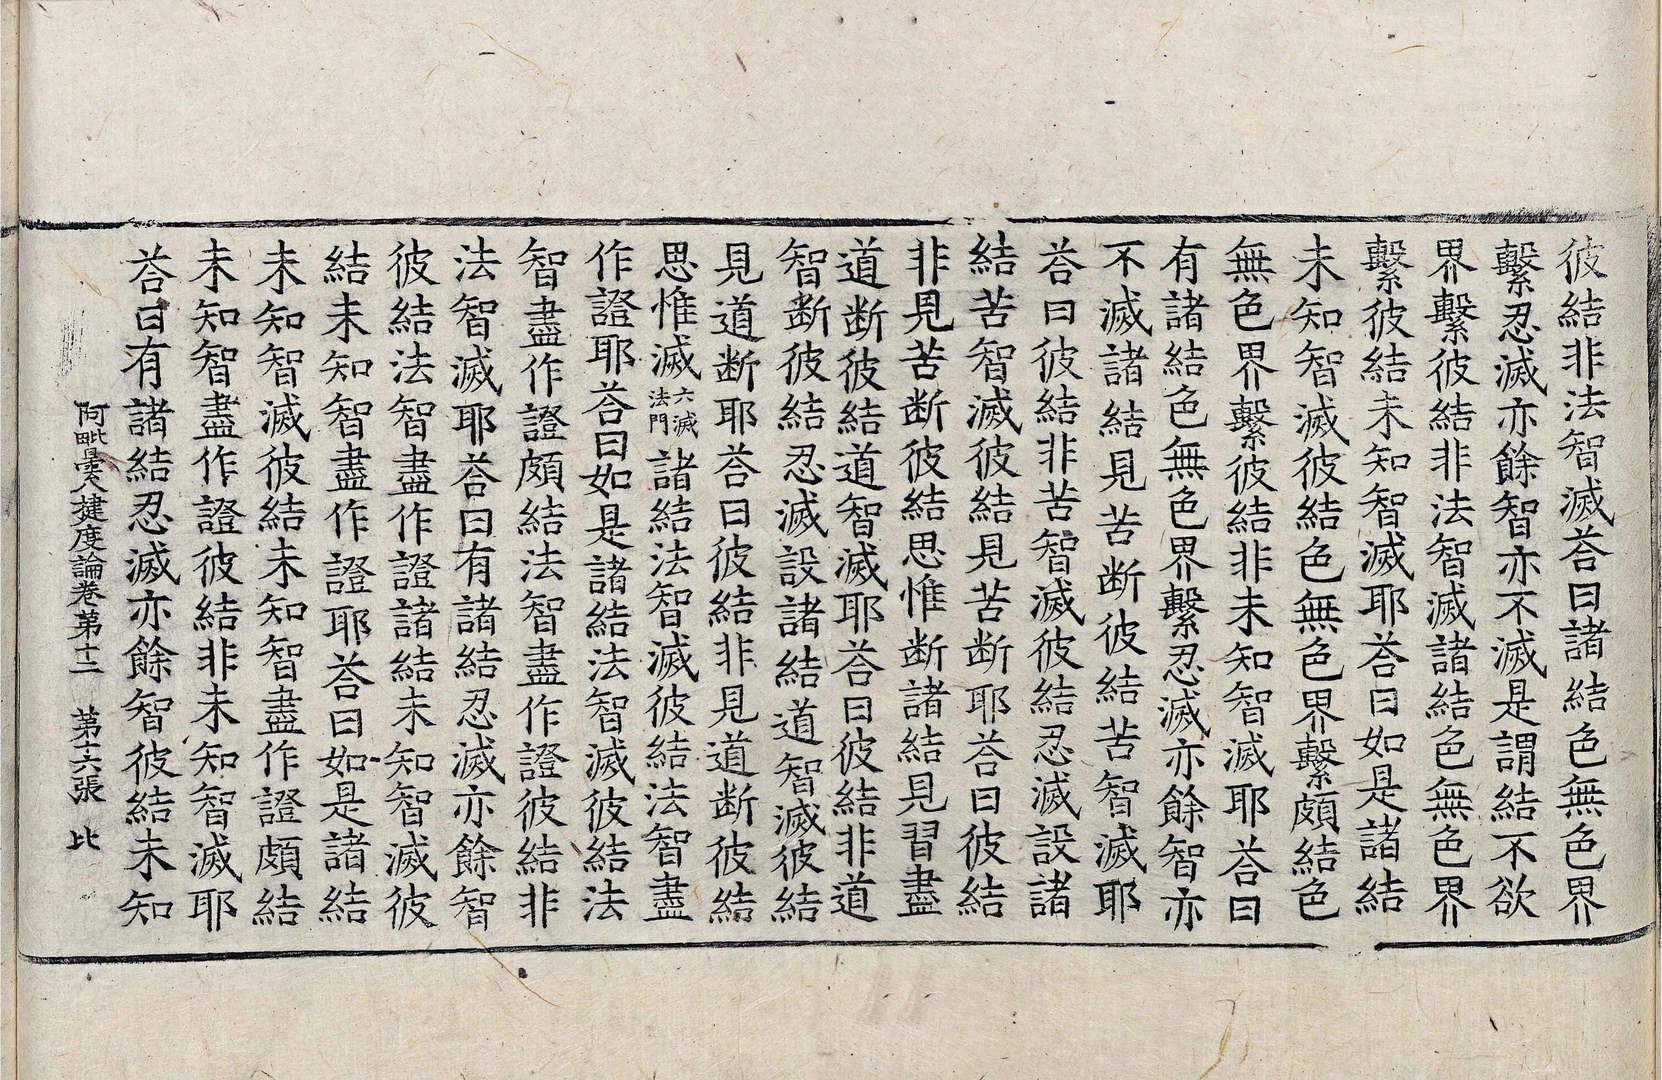 彼結非法智滅荅曰諸結色無色界
繫忍滅亦餘智亦不滅是謂結不欲
界繫彼結非法智滅諸結色無色界
繫彼結未知智滅耶荅曰如是諸結
未知智滅彼結色無色界繫頗結色
無色界繫彼結非未知智滅耶荅曰
有諸結色無色界繫忍滅亦餘智亦
不滅諸結見苦断彼結苦智滅耶
荅曰彼結非苦智滅彼結忍滅設諸
結苦智滅彼結見苦断耶荅曰彼結
非見苦断彼結思惟断諸結見習盡
道断彼結道智滅耶荅曰彼結非道
智断彼結忍滅設諸結道智滅彼結
見道断耶荅曰彼結非見道断彼結
思惟滅六滅法門諸結法智滅彼結法智盡
作證耶荅曰如是諸結法智滅彼結法
智盡作證頗結法智盡作證彼結非
法智滅耶荅曰有諸結忍滅亦餘智
彼結法智盡作證諸結未知智滅彼
結未知智盡作證耶荅曰如是諸結
未知智滅彼結未知智盡作證頗結
未知智盡作證彼結非未知智滅耶
荅曰有諸結忍滅亦餘智彼結未知
阿毗曇八揵度論卷第十二 第十六張 比